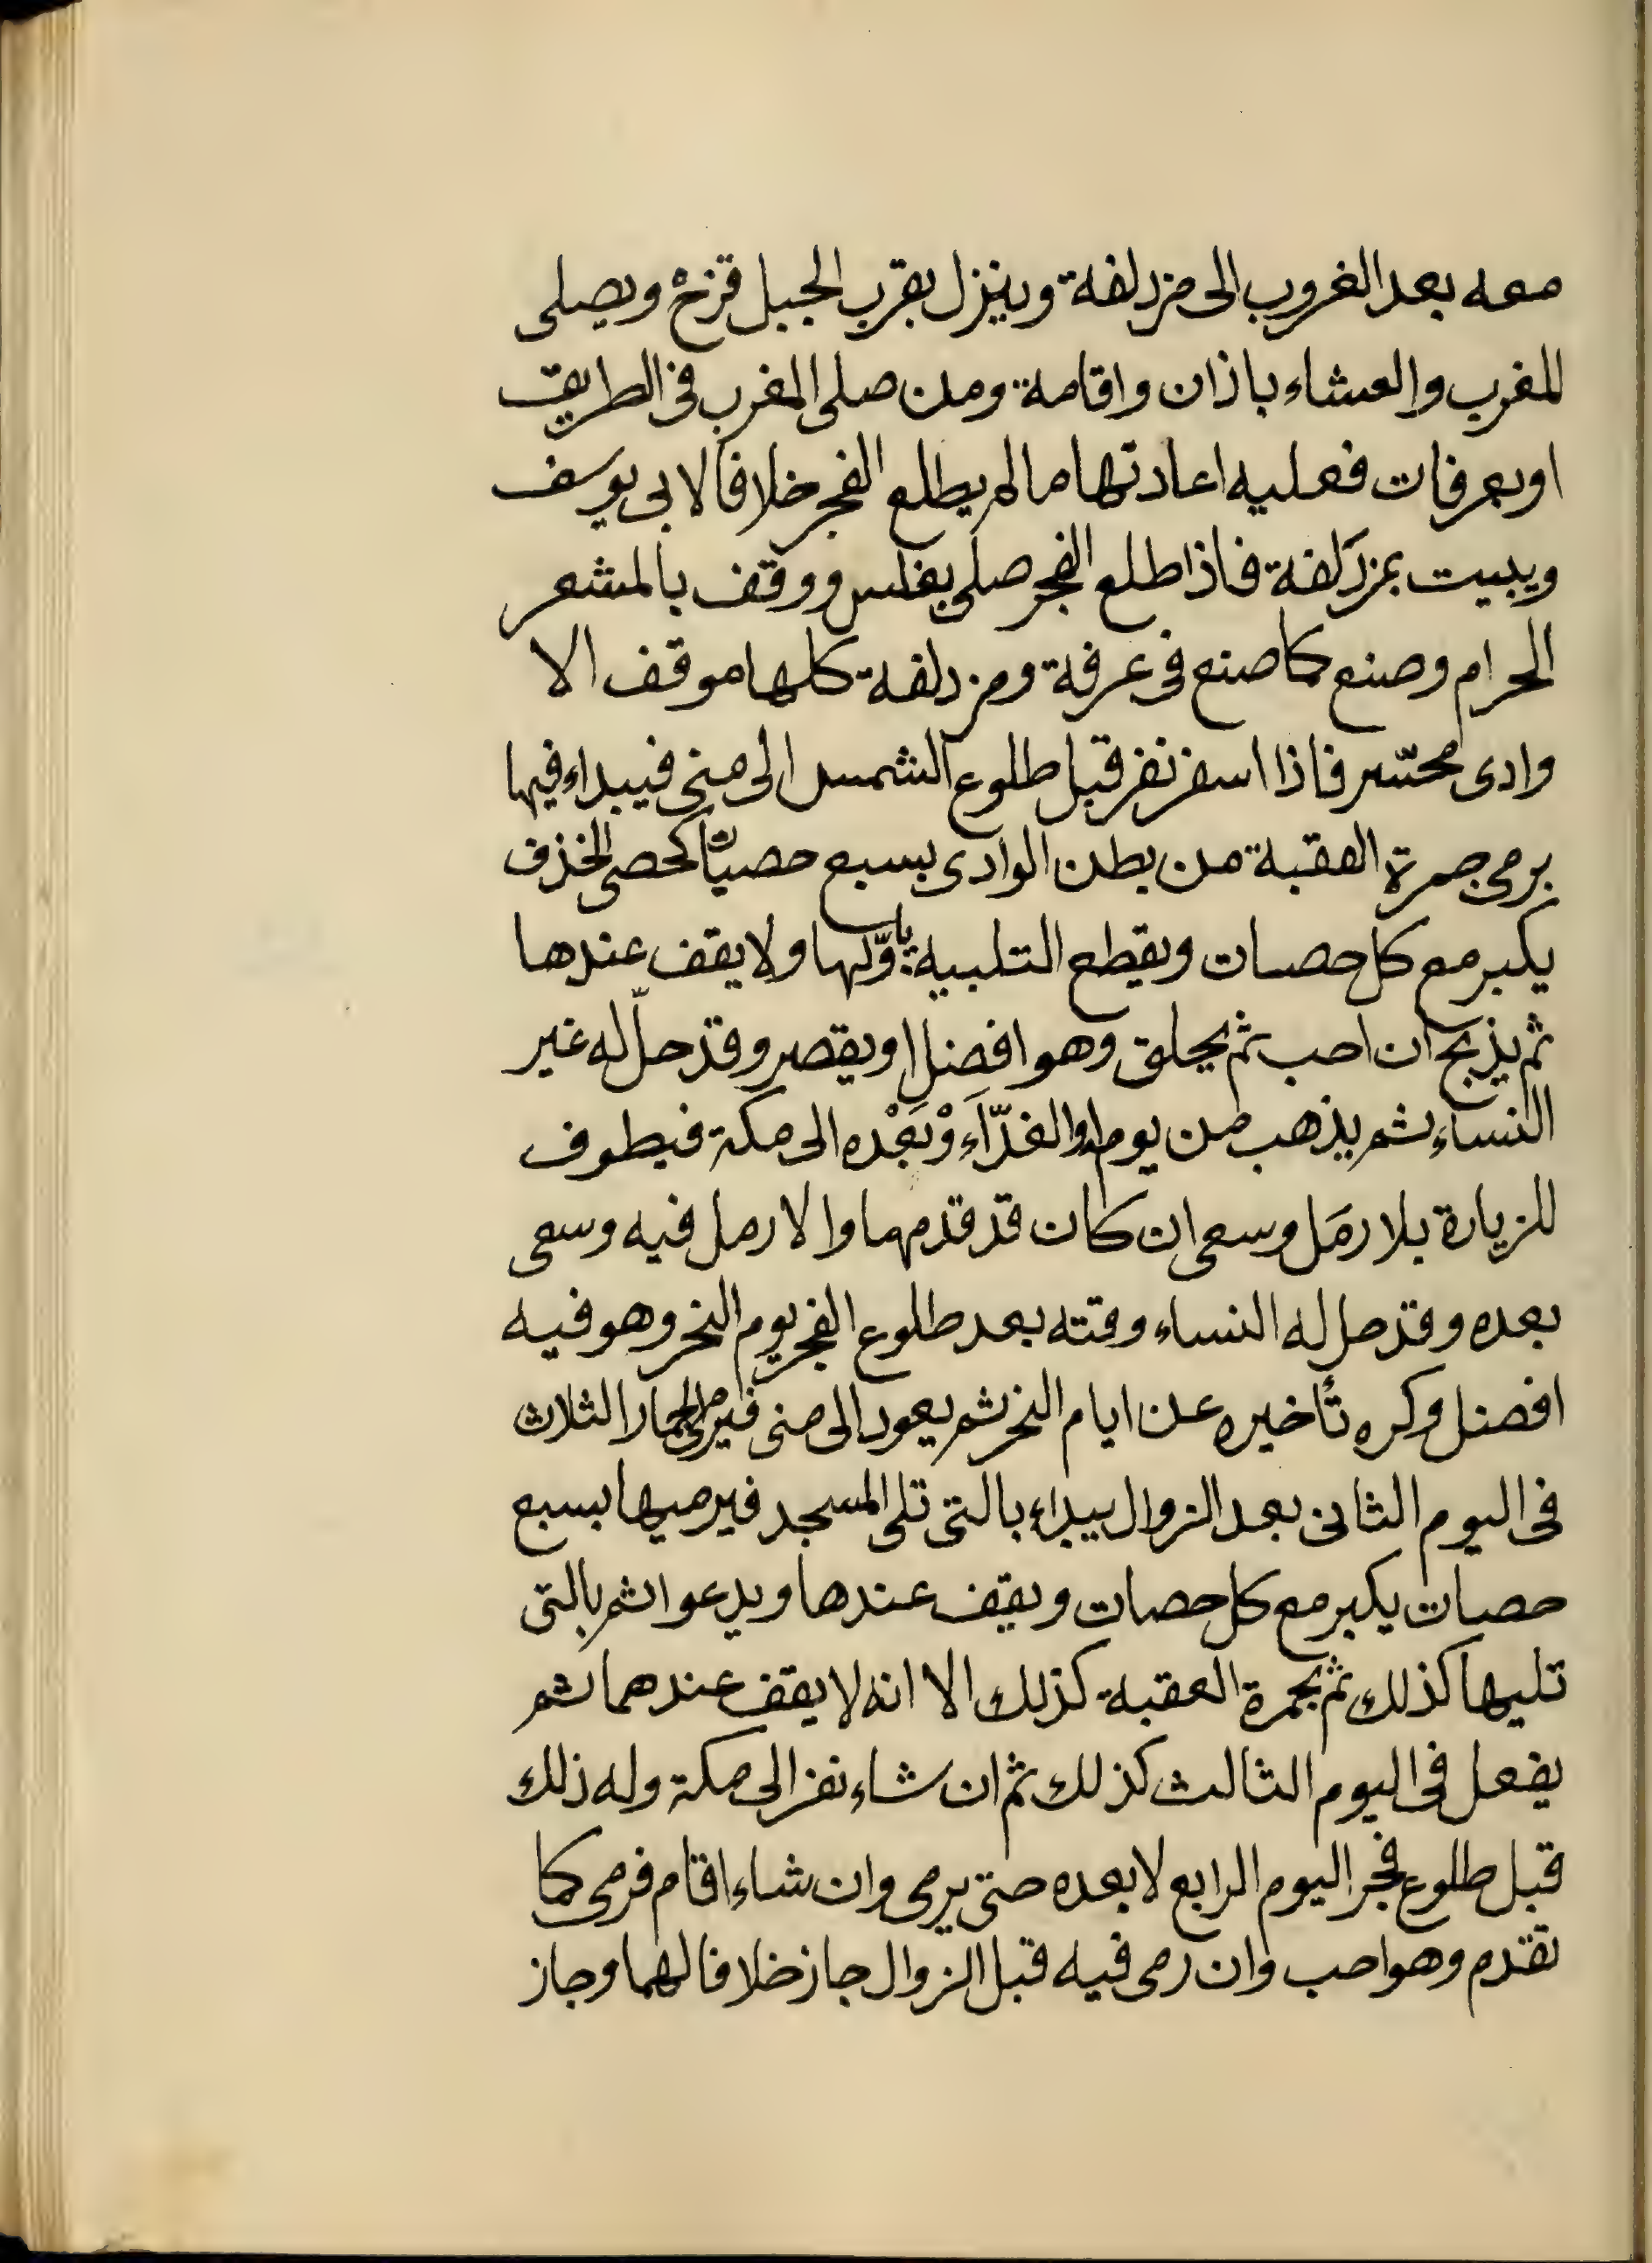 معه بعد الغروب الى مزدلفة وينزل بقرب الجبل قزخ ويصلى
المغرب والعشاء باذان واقامة ومن صلى المغرب فى الطريق
او بعرفات فعليه اعادتها مالم يطلع الفجر خلافا لابى يوسف
ويبيت بمزدلفة فاذا طلع الفجر صلى بغلس ووقف بالمشعر
الحرام وصنع كما صنع فى عرفة ومزدلفة كلها موقف الا
وادى محسّر فاذا اسفر نفر قبل طلوع الشمس الى منى فيبداء فيها
برمى جمرة العقبة من بطن الوادى بسبع حصيات كحصى الخذف
يكبر مع كل حصات ويقطع التلبية باوّلها ولا يقف عندها
ثم يذبح ان احب ثم يحلق وهو افضل او يقصر وقد حلّ له غير
النساء ثم يذهب من يومه او الغد او بعده الى مكة فيطوف
للزيارة بلا رمَل وسعى ان كان قد قدمهما والا رمل فيه وسعى
بعده وقد حل له النساء وقته بعد طلوع الفجر يوم النحر وهو فيه
افضل وكره تأخيره عن ايام النحر ثم يعود الى منى فيرمى الجمار الثلاث
فى اليوم الثانى بعد الزوال يبداء بالتى تلى المسجد فيرميها بسبع
حصيات يكبر مع كل حصات ويقف عندها ويدعوا ثم بالتى
تليها كذلك ثم بجمرة العقبة كذلك الا انه لا يقف عندهما ثم
يفعل فى اليوم الثالث كذلك ثم ان شاء نفر الى مكة وله ذلك
قبل طلوع فجر اليوم الرابع لا بعده حتى يرمى وان شاء اقام فرمى كما
تقدم وهو احب وان رمى فيه قبل الزوال جاز خلافا لهما وجاز